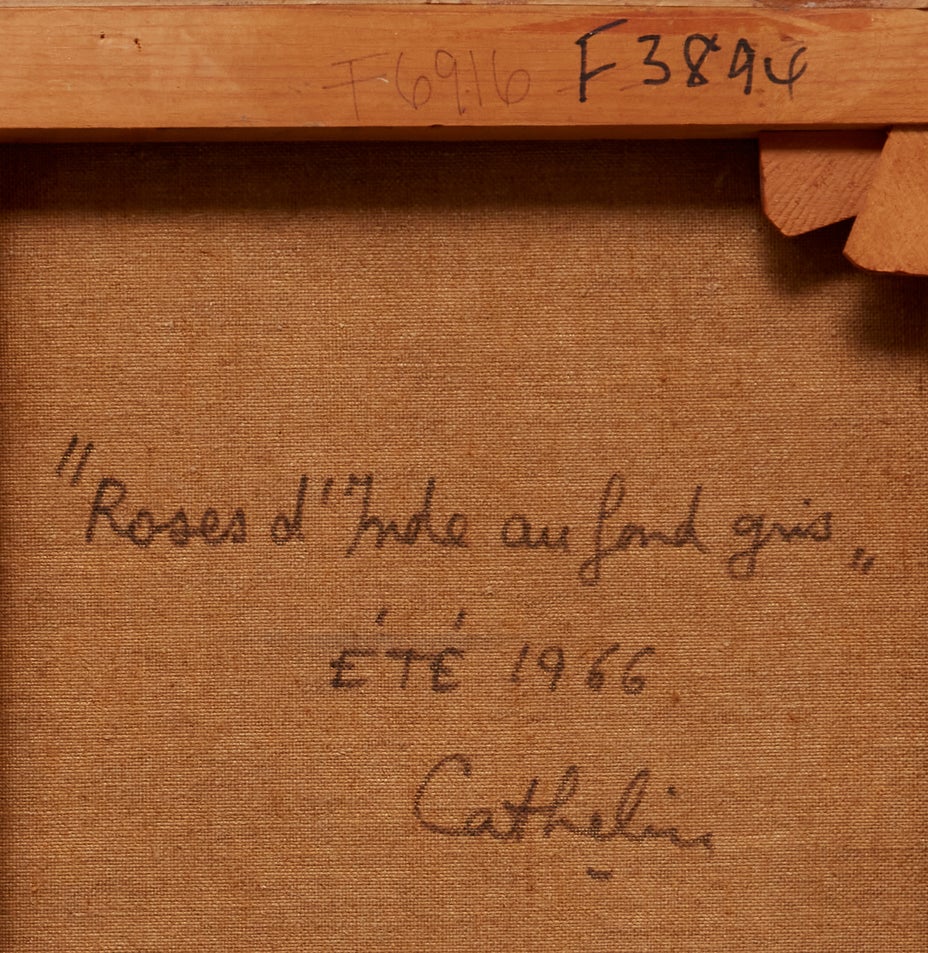 F6916 F3894
"Roses d'Inde au fond gris"
ÉTÉ 1966
Cathelin